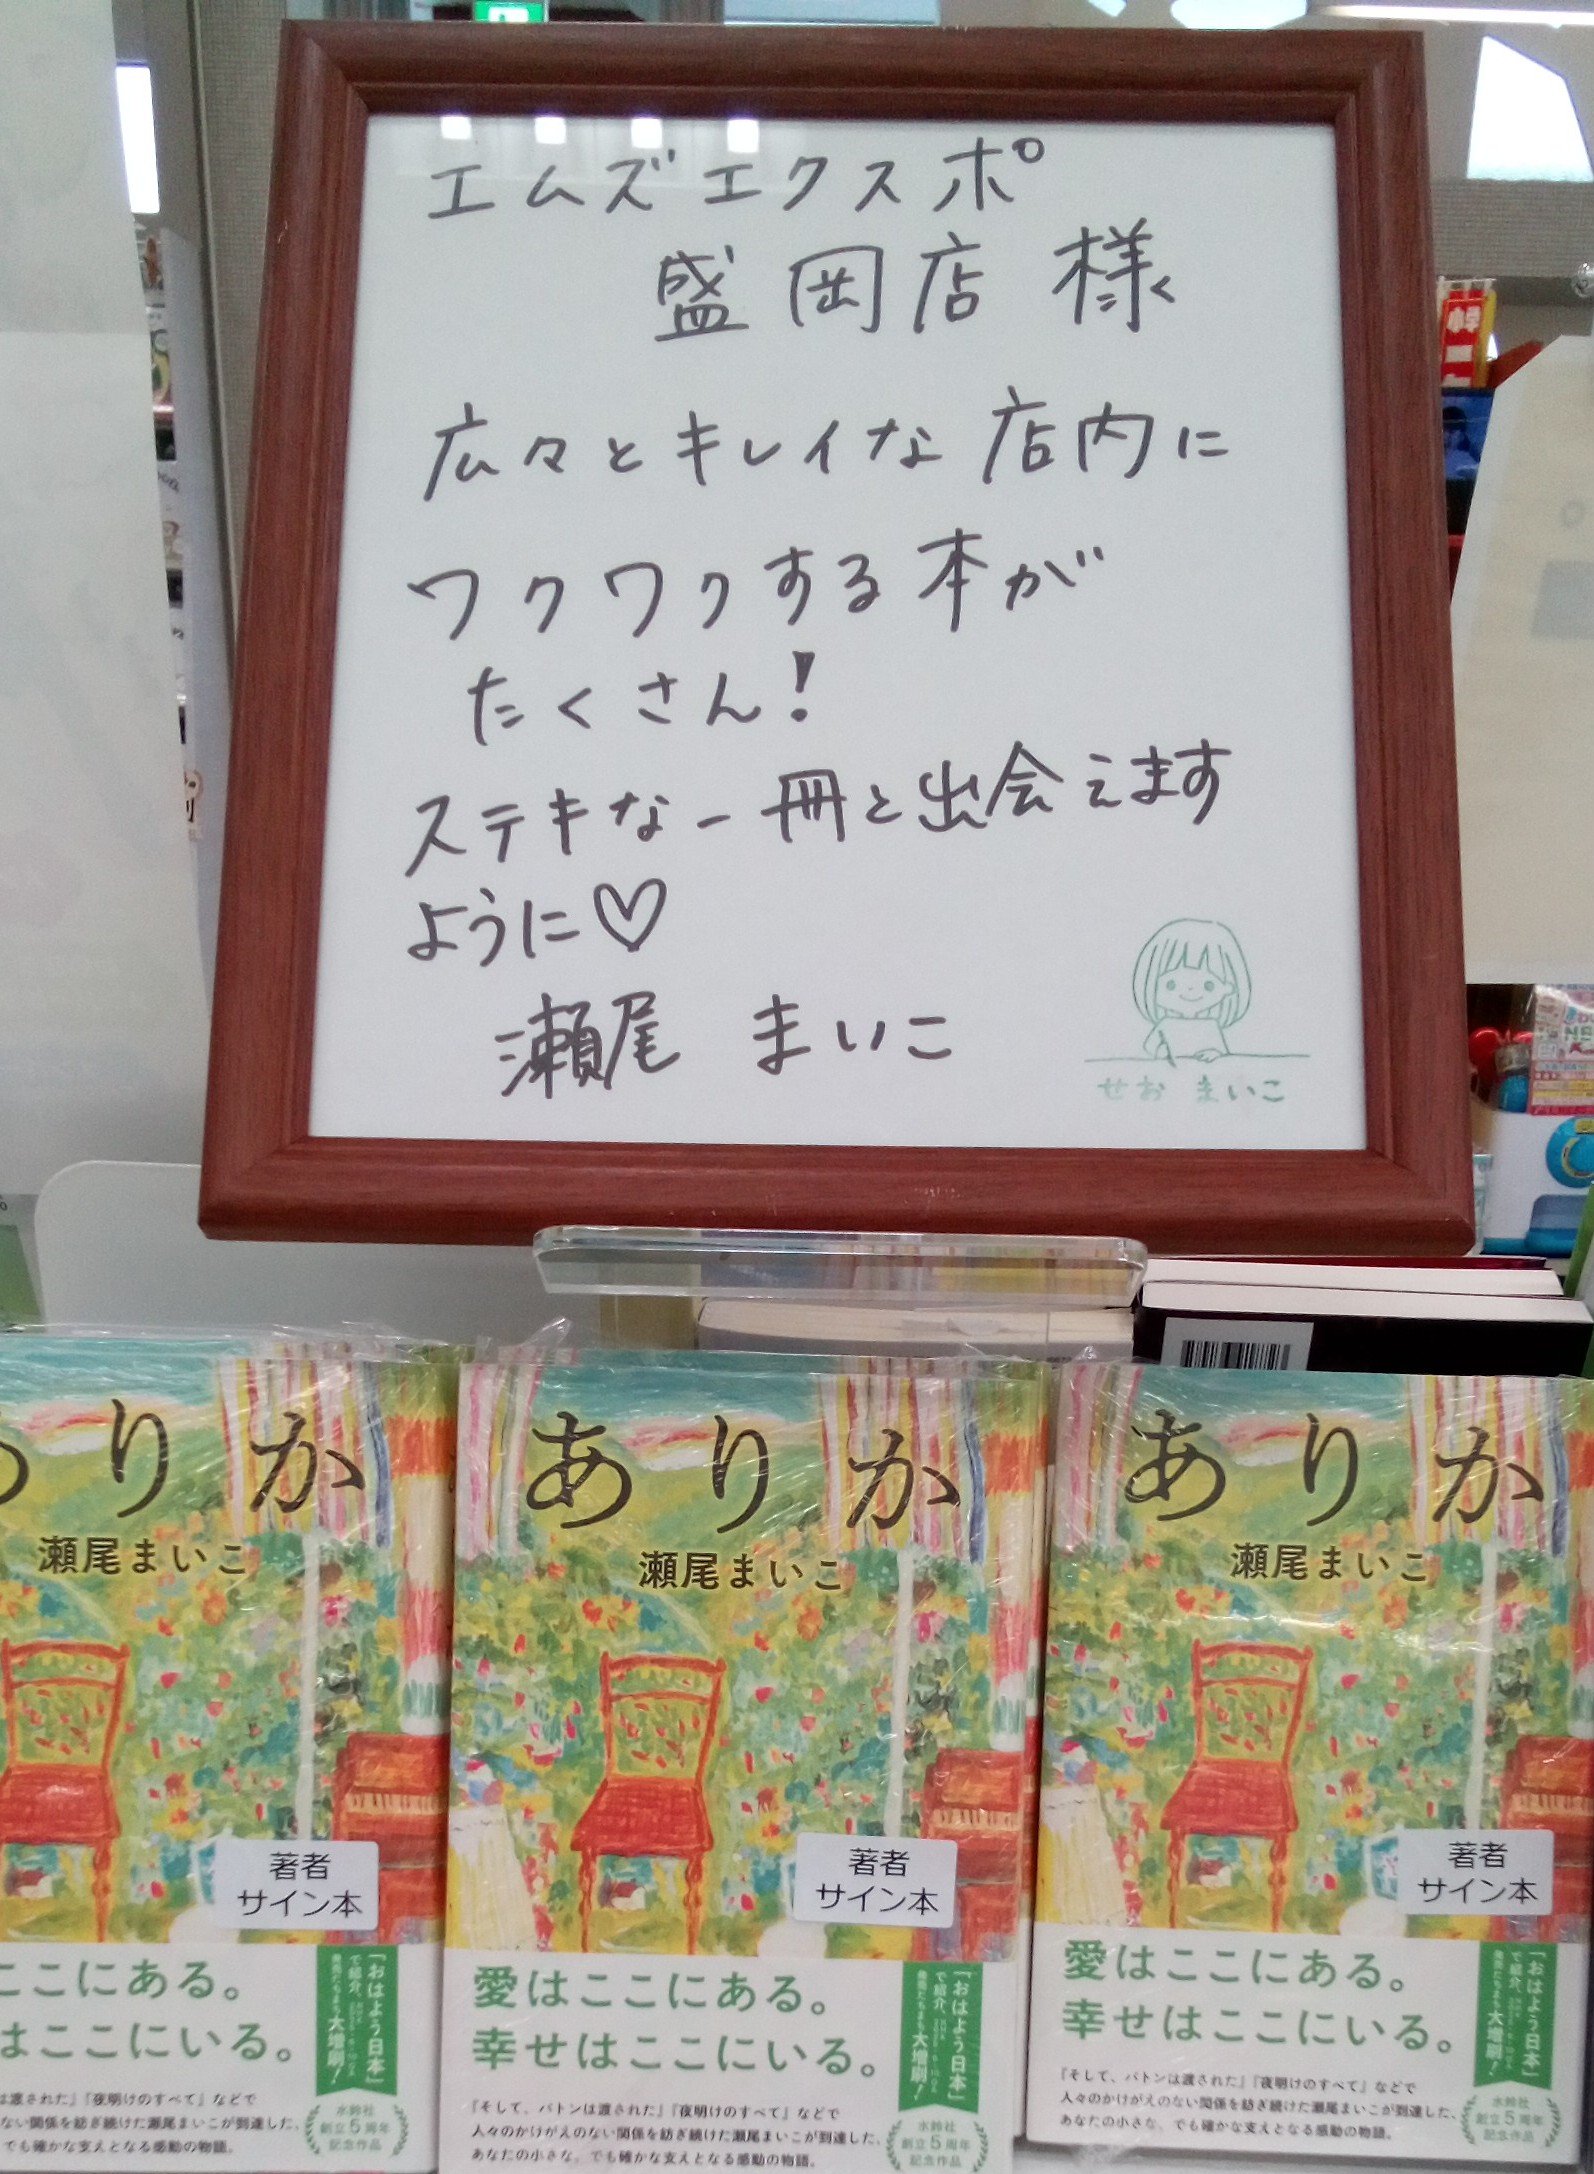 エムズエクスポ
盛岡店 様
広々とキレイな店内に
ワクワクする本が
たくさん!
ステキな一冊と出会えます
ように♡
瀬尾 まいこ
せお まいこ
りか
瀬尾まいこ
著者
サイン本
ここにある。
はここにいる。
「おはよう日本」
で紹介。
大増刷!
は渡された』『夜明けのすべて』などで
ない関係を紡ぎ続けた瀬尾まいこが到達した、
でも確かな支えとなる感動の物語。
水鈴社
創立5周年
記念作品
ありか
瀬尾まいこ
著者
サイン本
愛はここにある。
幸せはここにいる。
「おはよう日本」
で紹介。
発売たちまち大増刷!
『そして、バトンは渡された』『夜明けのすべて』などで
人々のかけがえのない関係を紡ぎ続けた瀬尾まいこが到達した、
あなたの小さな、でも確かな支えとなる感動の物語。
水鈴社
創立5周年
記念作品
ありか
瀬尾まいこ
著者
サイン本
愛はここにある。
幸せはここにいる。
「おはよう日本」
で紹介。
発売たちまち大増刷!
『そして、バトンは渡された』『夜明けのすべて』などで
人々のかけがえのない関係を紡ぎ続けた瀬尾まいこが到達した、
あなたの小さな、でも確かな支えとなる感動の物語。
水鈴社
創立5周年
記念作品